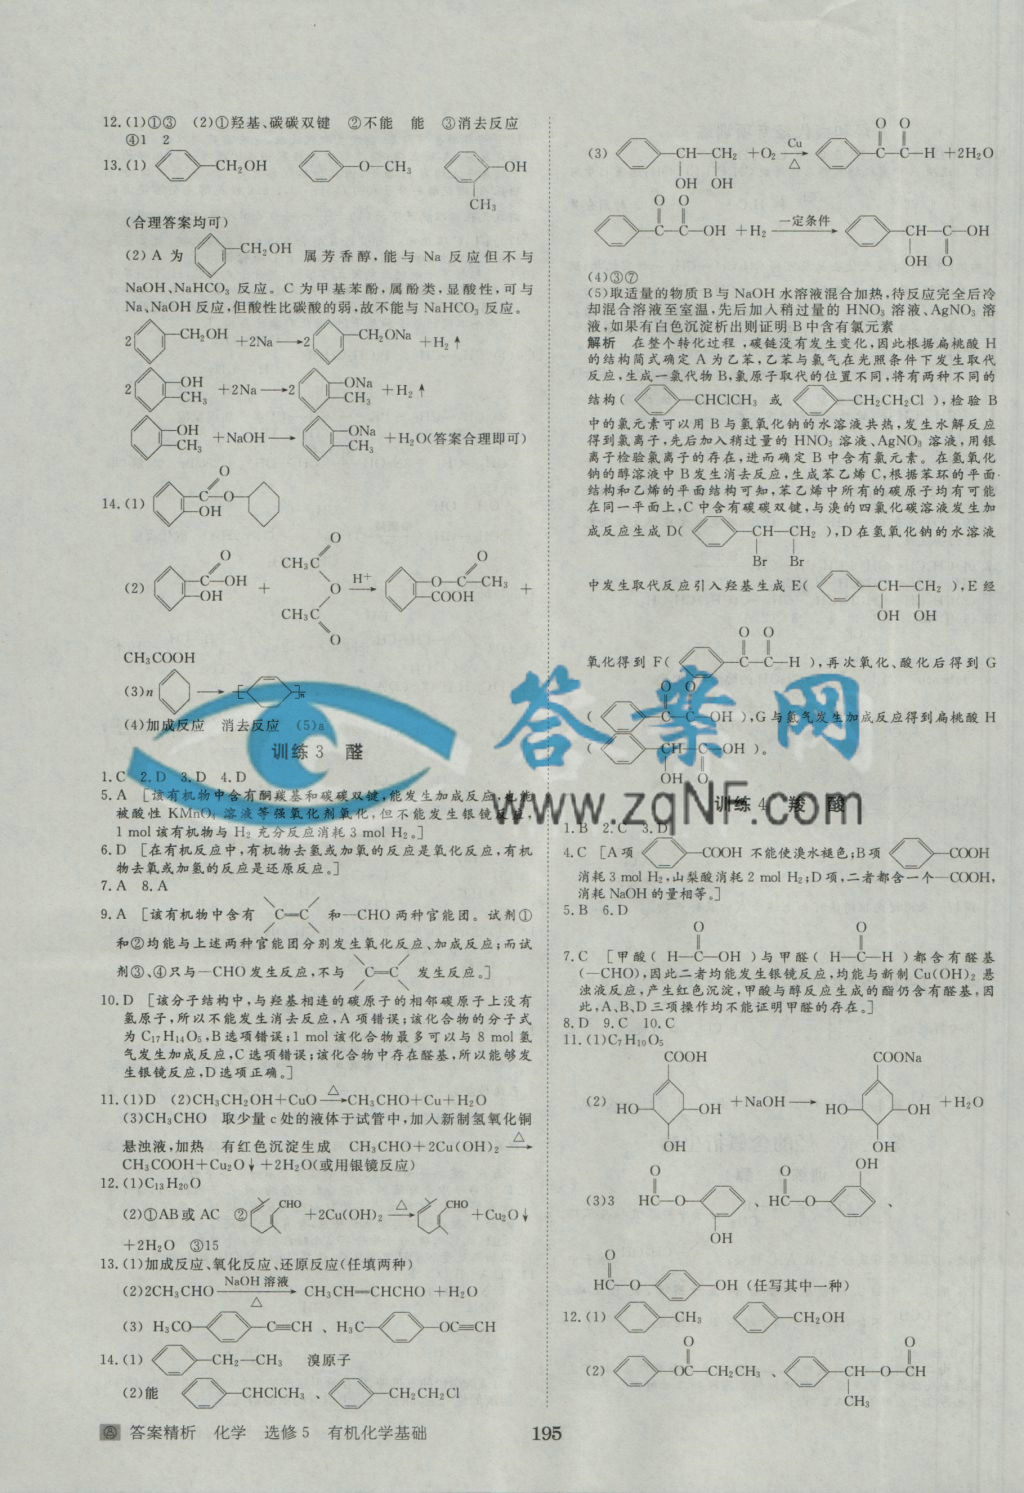 12.(1)①③ (2)①羟基、碳碳双键 ②不能 能 ③消去反应
④1 2
13.(1) —CH₂OH —O—CH₃ —OH
CH₃
(合理答案均可)
(2)A 为 —CH₂OH 属芳香醇,能与 Na 反应但不与
NaOH、NaHCO₃ 反应。C 为甲基苯酚,属酚类,显酸性,可与
Na、NaOH 反应,但酸性比碳酸的弱,故不能与 NaHCO₃ 反应。
2 —CH₂OH +2Na→2 —CH₂ONa +H₂↑
2 —OH —CH₃ +2Na→2 —ONa —CH₃ +H₂↑
—OH —CH₃ +NaOH→ —ONa —CH₃ +H₂O(答案合理即可)
14.(1) O C—O— OH
(2) O C—OH OH + CH₃C O O CH₃C O H⁺→ O —O—C—CH₃ —COOH +
CH₃COOH
(3)n → [ ]n
(4)加成反应 消去反应 (5)a
训练3 醛
1.C 2.D 3.D 4.D
5.A [该有机物中含有酮羰基和碳碳双键,能发生加成反应,也能
被酸性 KMnO₄ 溶液等强氧化剂氧化,但不能发生银镜反应,
1 mol 该有机物与 H₂ 充分反应消耗 3 mol H₂。]
6.D [在有机反应中,有机物去氢或加氧的反应是氧化反应,有机
物去氧或加氢的反应是还原反应。]
7.A 8.A
9.A [该有机物中含有 C═C 和—CHO 两种官能团。试剂①
和②均能与上述两种官能团分别发生氧化反应、加成反应;而试
剂③、④只与—CHO 发生反应,不与 C═C 发生反应。]
10.D [该分子结构中,与羟基相连的碳原子的相邻碳原子上没有
氢原子,所以不能发生消去反应,A 项错误;该化合物的分子式
为 C₁₇H₁₄O₅,B 选项错误;1 mol 该化合物最多可以与 8 mol 氢
气发生加成反应,C 选项错误;该化合物中存在醛基,所以能够发
生银镜反应,D 选项正确。]
11.(1)D (2)CH₃CH₂OH+CuO —△→CH₃CHO+Cu+H₂O
(3)CH₃CHO 取少量 c 处的液体于试管中,加入新制氢氧化铜
悬浊液,加热 有红色沉淀生成 CH₃CHO+2Cu(OH)₂ —△→
CH₃COOH+Cu₂O↓+2H₂O(或用银镜反应)
12.(1)C₁₃H₂₀O
(2)①AB 或 AC ② CHO +2Cu(OH)₂ —△→ CHO +Cu₂O↓
+2H₂O ③15
13.(1)加成反应、氧化反应、还原反应(任填两种)
(2)2CH₃CHO —NaOH 溶液 △→ CH₃CH═CHCHO +H₂O
(3) H₃CO— —C≡CH 、H₃C— —OC≡CH
14.(1) —CH₂—CH₃ 溴原子
(2)能 —CHClCH₃ 、 —CH₂CH₂Cl
(3) —CH—CH₂ OH OH +O₂ —Cu △→ O O —C—C—H +2H₂O
O O —C—C—OH +H₂ —一定条件→ —CH—C—OH OH O
(4)③⑦
(5)取适量的物质 B 与 NaOH 水溶液混合加热,待反应完全后冷
却混合溶液至室温,先后加入稍过量的 HNO₃ 溶液、AgNO₃ 溶
液,如果有白色沉淀析出则证明 B 中含有氯元素
解析 在整个转化过程,碳链没有发生变化,因此根据扁桃酸 H
的结构简式确定 A 为乙苯,乙苯与氯气在光照条件下发生取代
反应,生成一氯代物 B,氯原子取代的位置不同,将有两种不同的
结构( —CHClCH₃ 或 —CH₂CH₂Cl ),检验 B
中的氯元素可以用 B 与氢氧化钠的水溶液共热,发生水解反应
得到氯离子,先后加入稍过量的 HNO₃ 溶液、AgNO₃ 溶液,用银
离子检验氯离子的存在,进而确定 B 中含有氯元素。在氢氧化
钠的醇溶液中 B 发生消去反应,生成苯乙烯 C,根据苯环的平面
结构和乙烯的平面结构可知,苯乙烯中所有的碳原子均有可能
在同一平面上,C 中含有碳碳双键,与溴的四氯化碳溶液发生加
成反应生成 D( —CH—CH₂ ),D 在氢氧化钠的水溶液
Br Br
中发生取代反应引入羟基生成 E( —CH—CH₂ ),E 经
OH OH
O O
氧化得到 F( —C—C—H ),再次氧化、酸化后得到 G
O O
( —C—C—OH ),G 与氢气发生加成反应得到扁桃酸 H
( —CH—C—OH )。
OH O
训练4 羧 酸
1.B 2.C 3.D
4.C [A 项 —COOH 不能使溴水褪色;B 项 —COOH
消耗 3 mol H₂,山梨酸消耗 2 mol H₂;D 项,二者都含一个—COOH,
消耗 NaOH 的量相等。]
5.B 6.D
O O
7.C [甲酸( H—C—OH )与甲醛( H—C—H )都含有醛基
(—CHO),因此二者均能发生银镜反应,均能与新制 Cu(OH)₂ 悬
浊液反应,产生红色沉淀,甲酸与醇反应生成的酯仍含有醛基,因
此,A、B、D 三项操作均不能证明甲醛的存在。]
8.D 9.C 10.C
11.(1)C₇H₁₀O₅
COOH COONa
(2) HO— —OH +NaOH→ HO— —OH +H₂O
OH OH
O O OH
(3)3 HC—O— 、HC—O— 、
OH
O
HC—O— —OH (任写其中一种)
12.(1) —CH₃ —CH₂OH
O O
(2) —OC—CH₂CH₃ 、 —CH—O—CH
CH₃
答案网
www.zqNF.com
答案精析 化学 选修5 有机化学基础 195